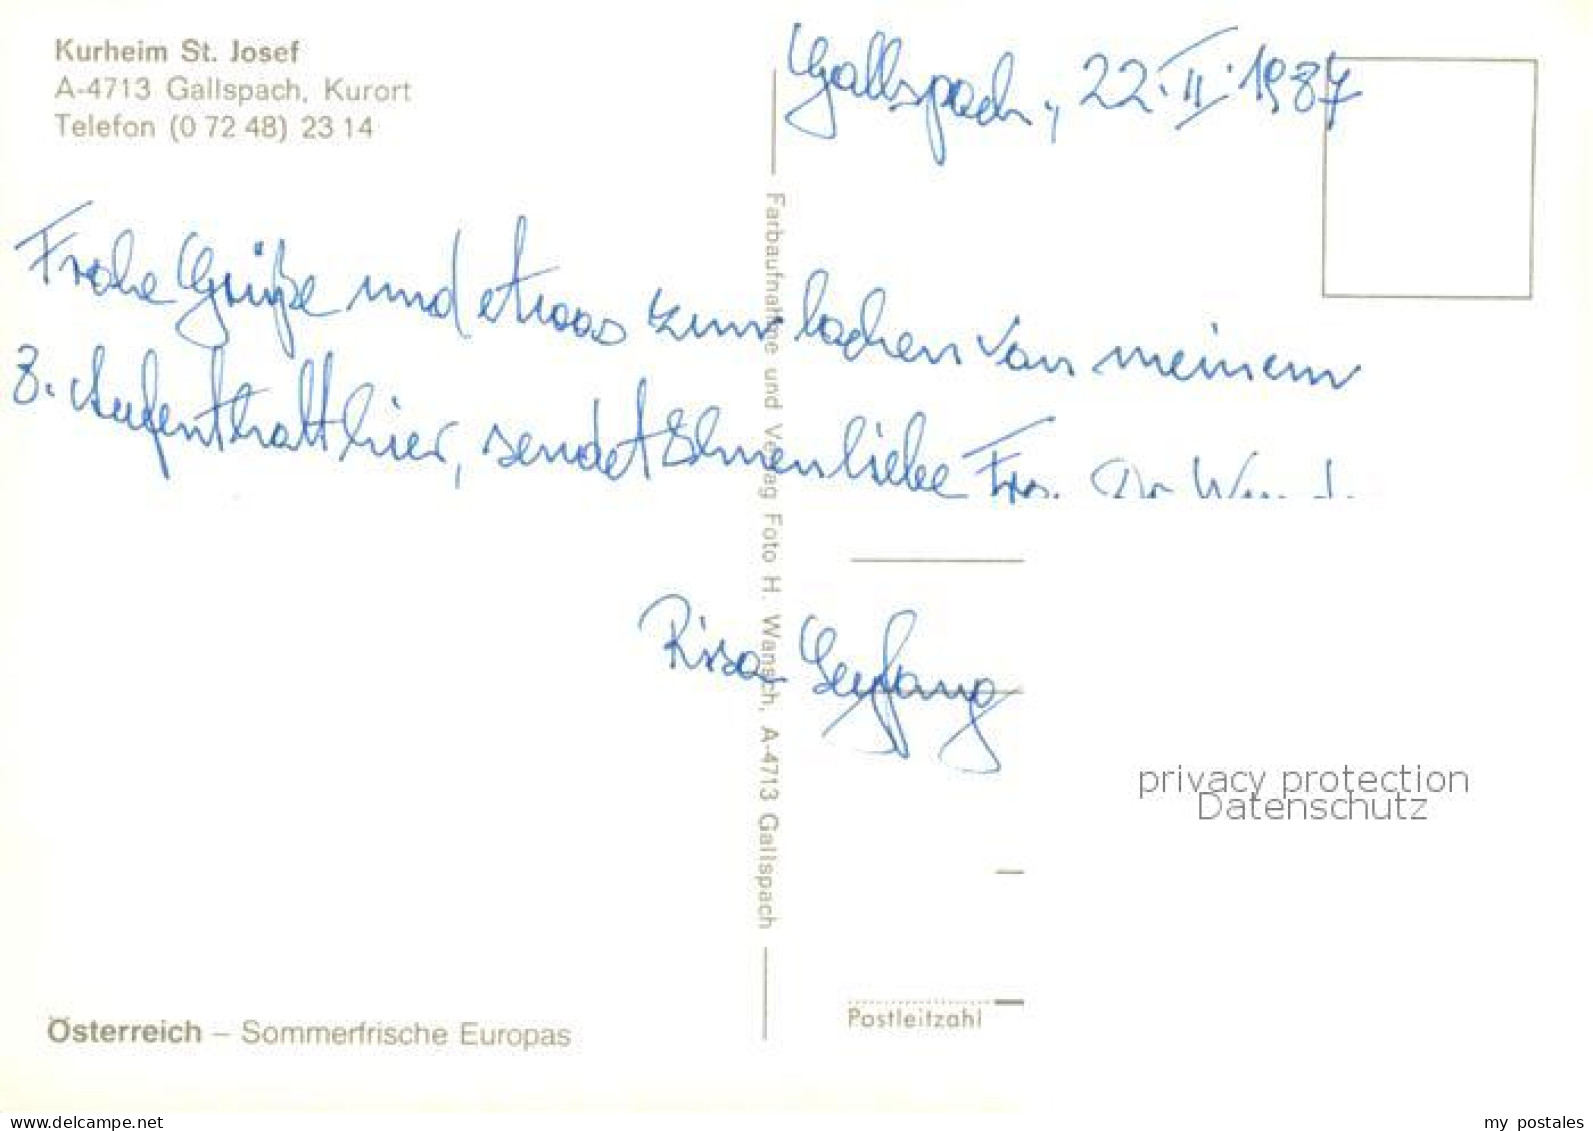 Kurheim St. Josef
A-4713 Gallspach, Kurort
Telefon (0 72 48) 23 14
Gallspach, 22. II. 1987
Frohe Grüße und etwas zum lachen von meinem
3. Aufenthalt hier, sendet Ihnen liebe Fra. Dr
Farbaufnahme und Verlag Foto H. Wansch, A-4713 Gallspach
privacy protection
Datenschutz
Postleitzahl
Österreich – Sommerfrische Europas
www.delcampe.net
my_postales